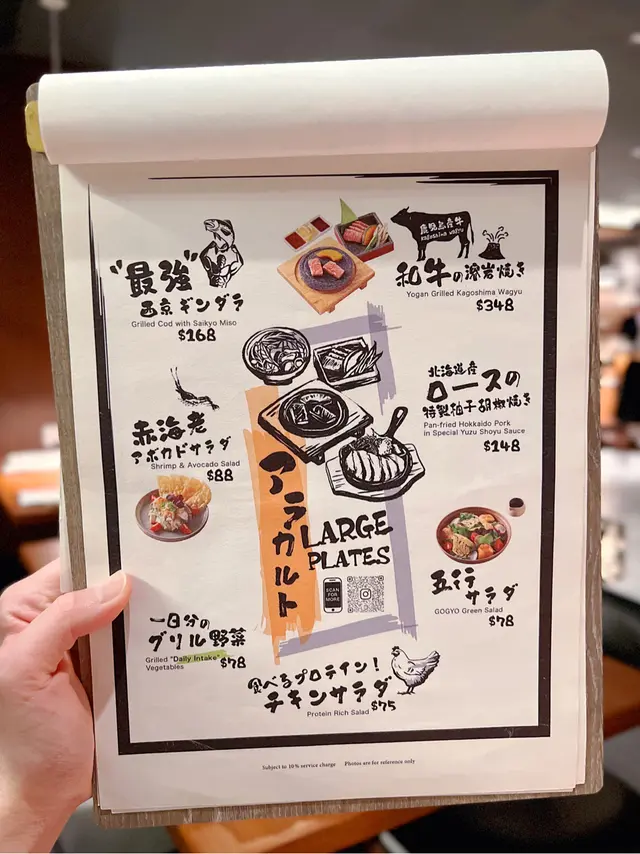 "最強"
西京ギンダラ
Grilled Cod with Saikyo Miso
$168
鹿児島産牛
Kagoshima Wagyu
和牛の溶岩焼き
Yogan Grilled Kagoshima Wagyu
$348
赤海老
アボカドサラダ
Shrimp & Avocado Salad
$88
北海道産
ロースの
特製柚子胡椒焼き
Pan-fried Hokkaido Pork
in Special Yuzu Shoyu Sauce
$148
アラカルト
LARGE
PLATES
SCAN
FOR
MORE
五行
サラダ
GOGYO Green Salad
$78
一日分の
グリル野菜
Grilled "Daily Intake"
Vegetables
$78
食べるプロテイン!
チキンサラダ
Protein Rich Salad
$75
Subject to 10% service charge Photos are for reference only